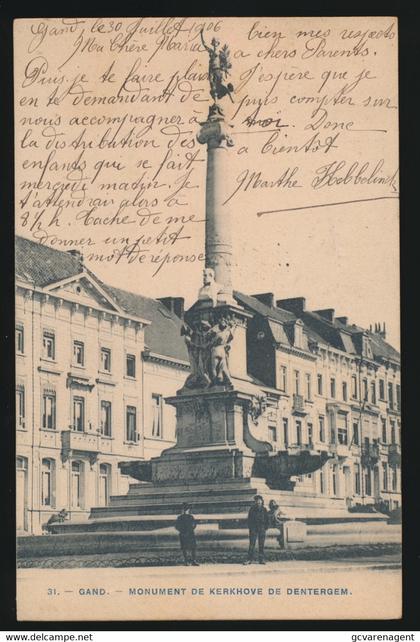 Gand, le 30 Juillet 1906
Ma Chère Maria
Puis-je te faire plaisir
en te demandant de
nous accompagner à
la distribution des
enfants qui se fait
mercredi matin. Je
t'attendrai alors à
8½ h. Tache de me
donner un petit
mot de réponse
bien mes respects
à chers Parents.
J'espère que je
puis compter sur
toi. Donc
à bientôt
Marthe
31. — GAND. — MONUMENT DE KERKHOVE DE DENTERGEM.